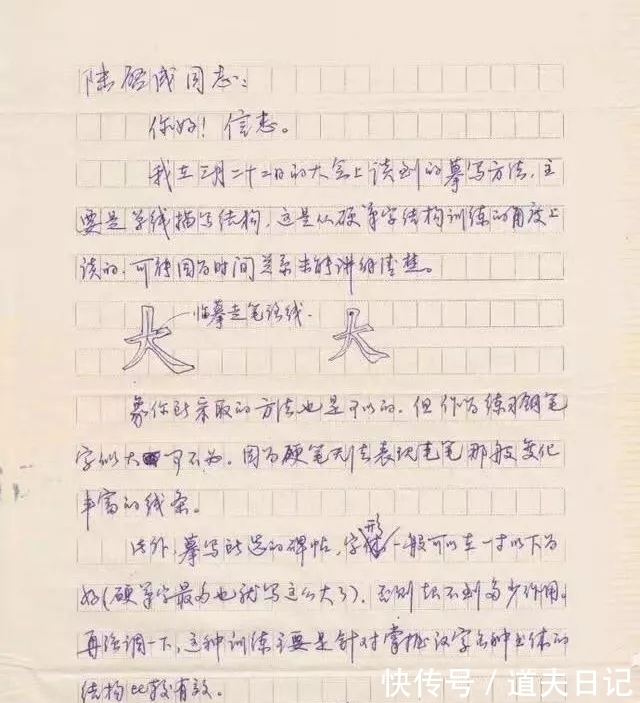 陆启成同志：
你好！信悉。
我在三月二十二日的大会上谈到的摹写方法，主
要是单线描写结构，这是从硬笔字结构训练的角度上
谈的，可能因为时间关系未能讲得清楚。
大 临摹走笔路线. 大
象你所采取的方法也是可以的，但作为练习钢笔
字似大可不为。因为硬笔无法表现毛笔那般变化
丰富的线条。
此外，摹写所选的碑帖，字形一般可以在一寸以下为
好(硬笔字最多也就写这么大了)，否则起不到多少作用。
再强调一下，这种训练主要是针对掌握汉字各种书体的
结构比较有效。
快传号 / 道夫日记